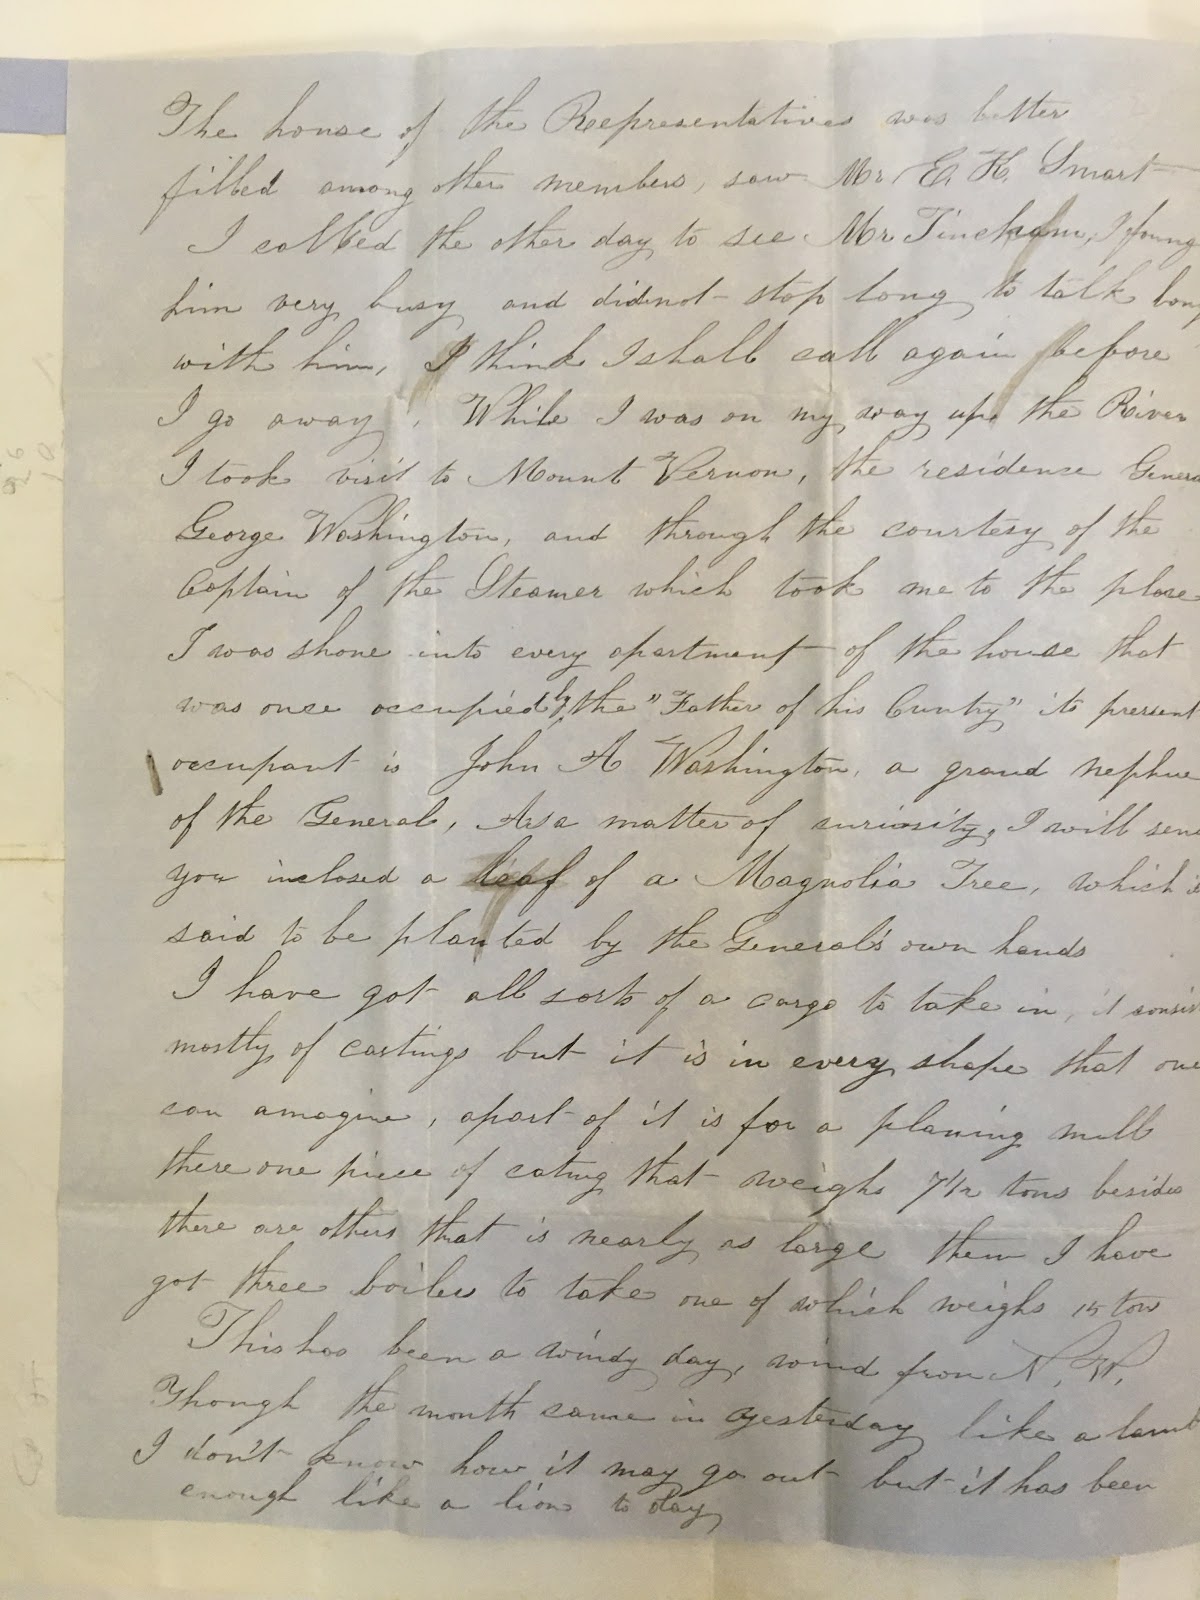 The house of the Reepresentatives was better
filled among other members, saw Mr E. K. Smart
I called the other day to see Mr Tinckham, I foung
him very busy and didnot stop long to talk long
with him, I think I shall call again before
I go away. While I was on my way up the River
I took visit to Mount Vernon, the residence Genera
George Washington, and through the courtesy of the
Captain of the Steamer which took me to the place
I was shone into every apartment of the house that
was once occupied by the "Father of his Cuntry" its present
occupant is John A Washington, a grand nephue
of the General, As a matter of curiosity, I will sene
you inclosed a leaf of a Magnolia Tree, which is
said to be planted by the General's own hands
I have got all sorts of a cargo to take in, it consis
mostly of castings but it is in every shape that one
can amagine, apart of it is for a planing mill
there one piece of cating that weighs 7 1/2 tons besides
there are others that is nearly as large them I have
got three boilers to take one of which weighs 15 tons
This has been a windy day, wind from N. W.
Though the month came in yesterday like a lamb
I don't know how it may go out but it has been
enough like a lion to day